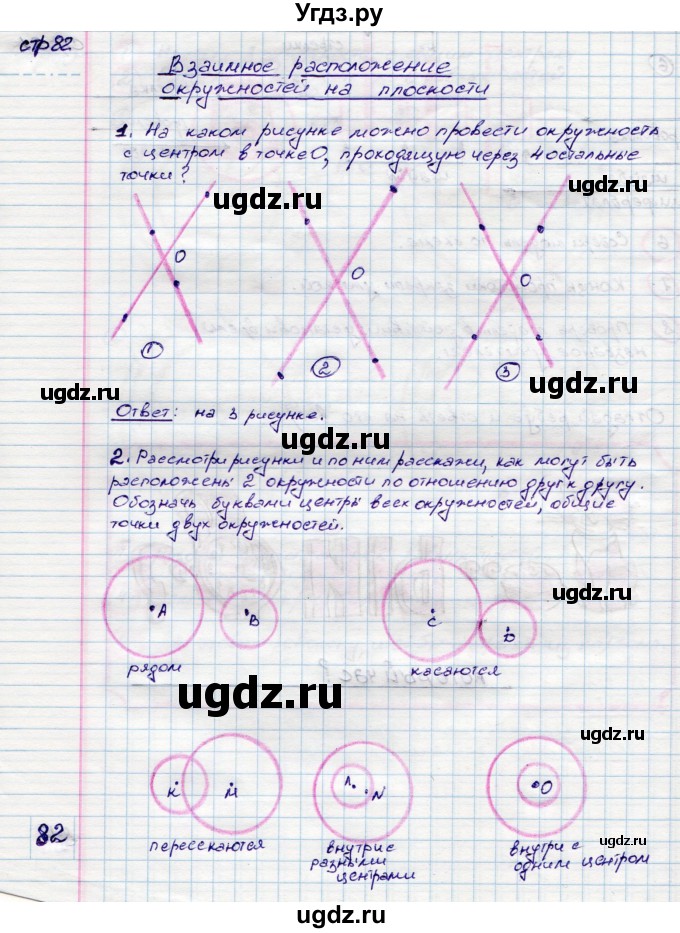 Угдз.ру
стр 82.
Взаимное расположение
окружностей на плоскости
1. На каком рисунке можно провести окружность
с центром в точке О, проходящую через 4 остальные
точки?
ugdz.ru ugdz.ru ugdz.ru
О О О
1 2 3
ugdz.ru ugdz.ru
Ответ: на 3 рисунке.
ugdz.ru
2. Рассмотри рисунки и по ним расскажи, как могут быть
расположены 2 окружности по отношению друг к другу.
Обозначь буквами центры всех окружностей, общие
точки двух окружностей.
ugdz.ru ugdz.ru
А В С D
рядом касаются
ugdz.ru
ugdz.ru ugdz.ru
К М А N О
82
пересекаются внутри с внутри с
разными одним центром
центрами
ugdz.ru ugdz.ru
ugdz.ru